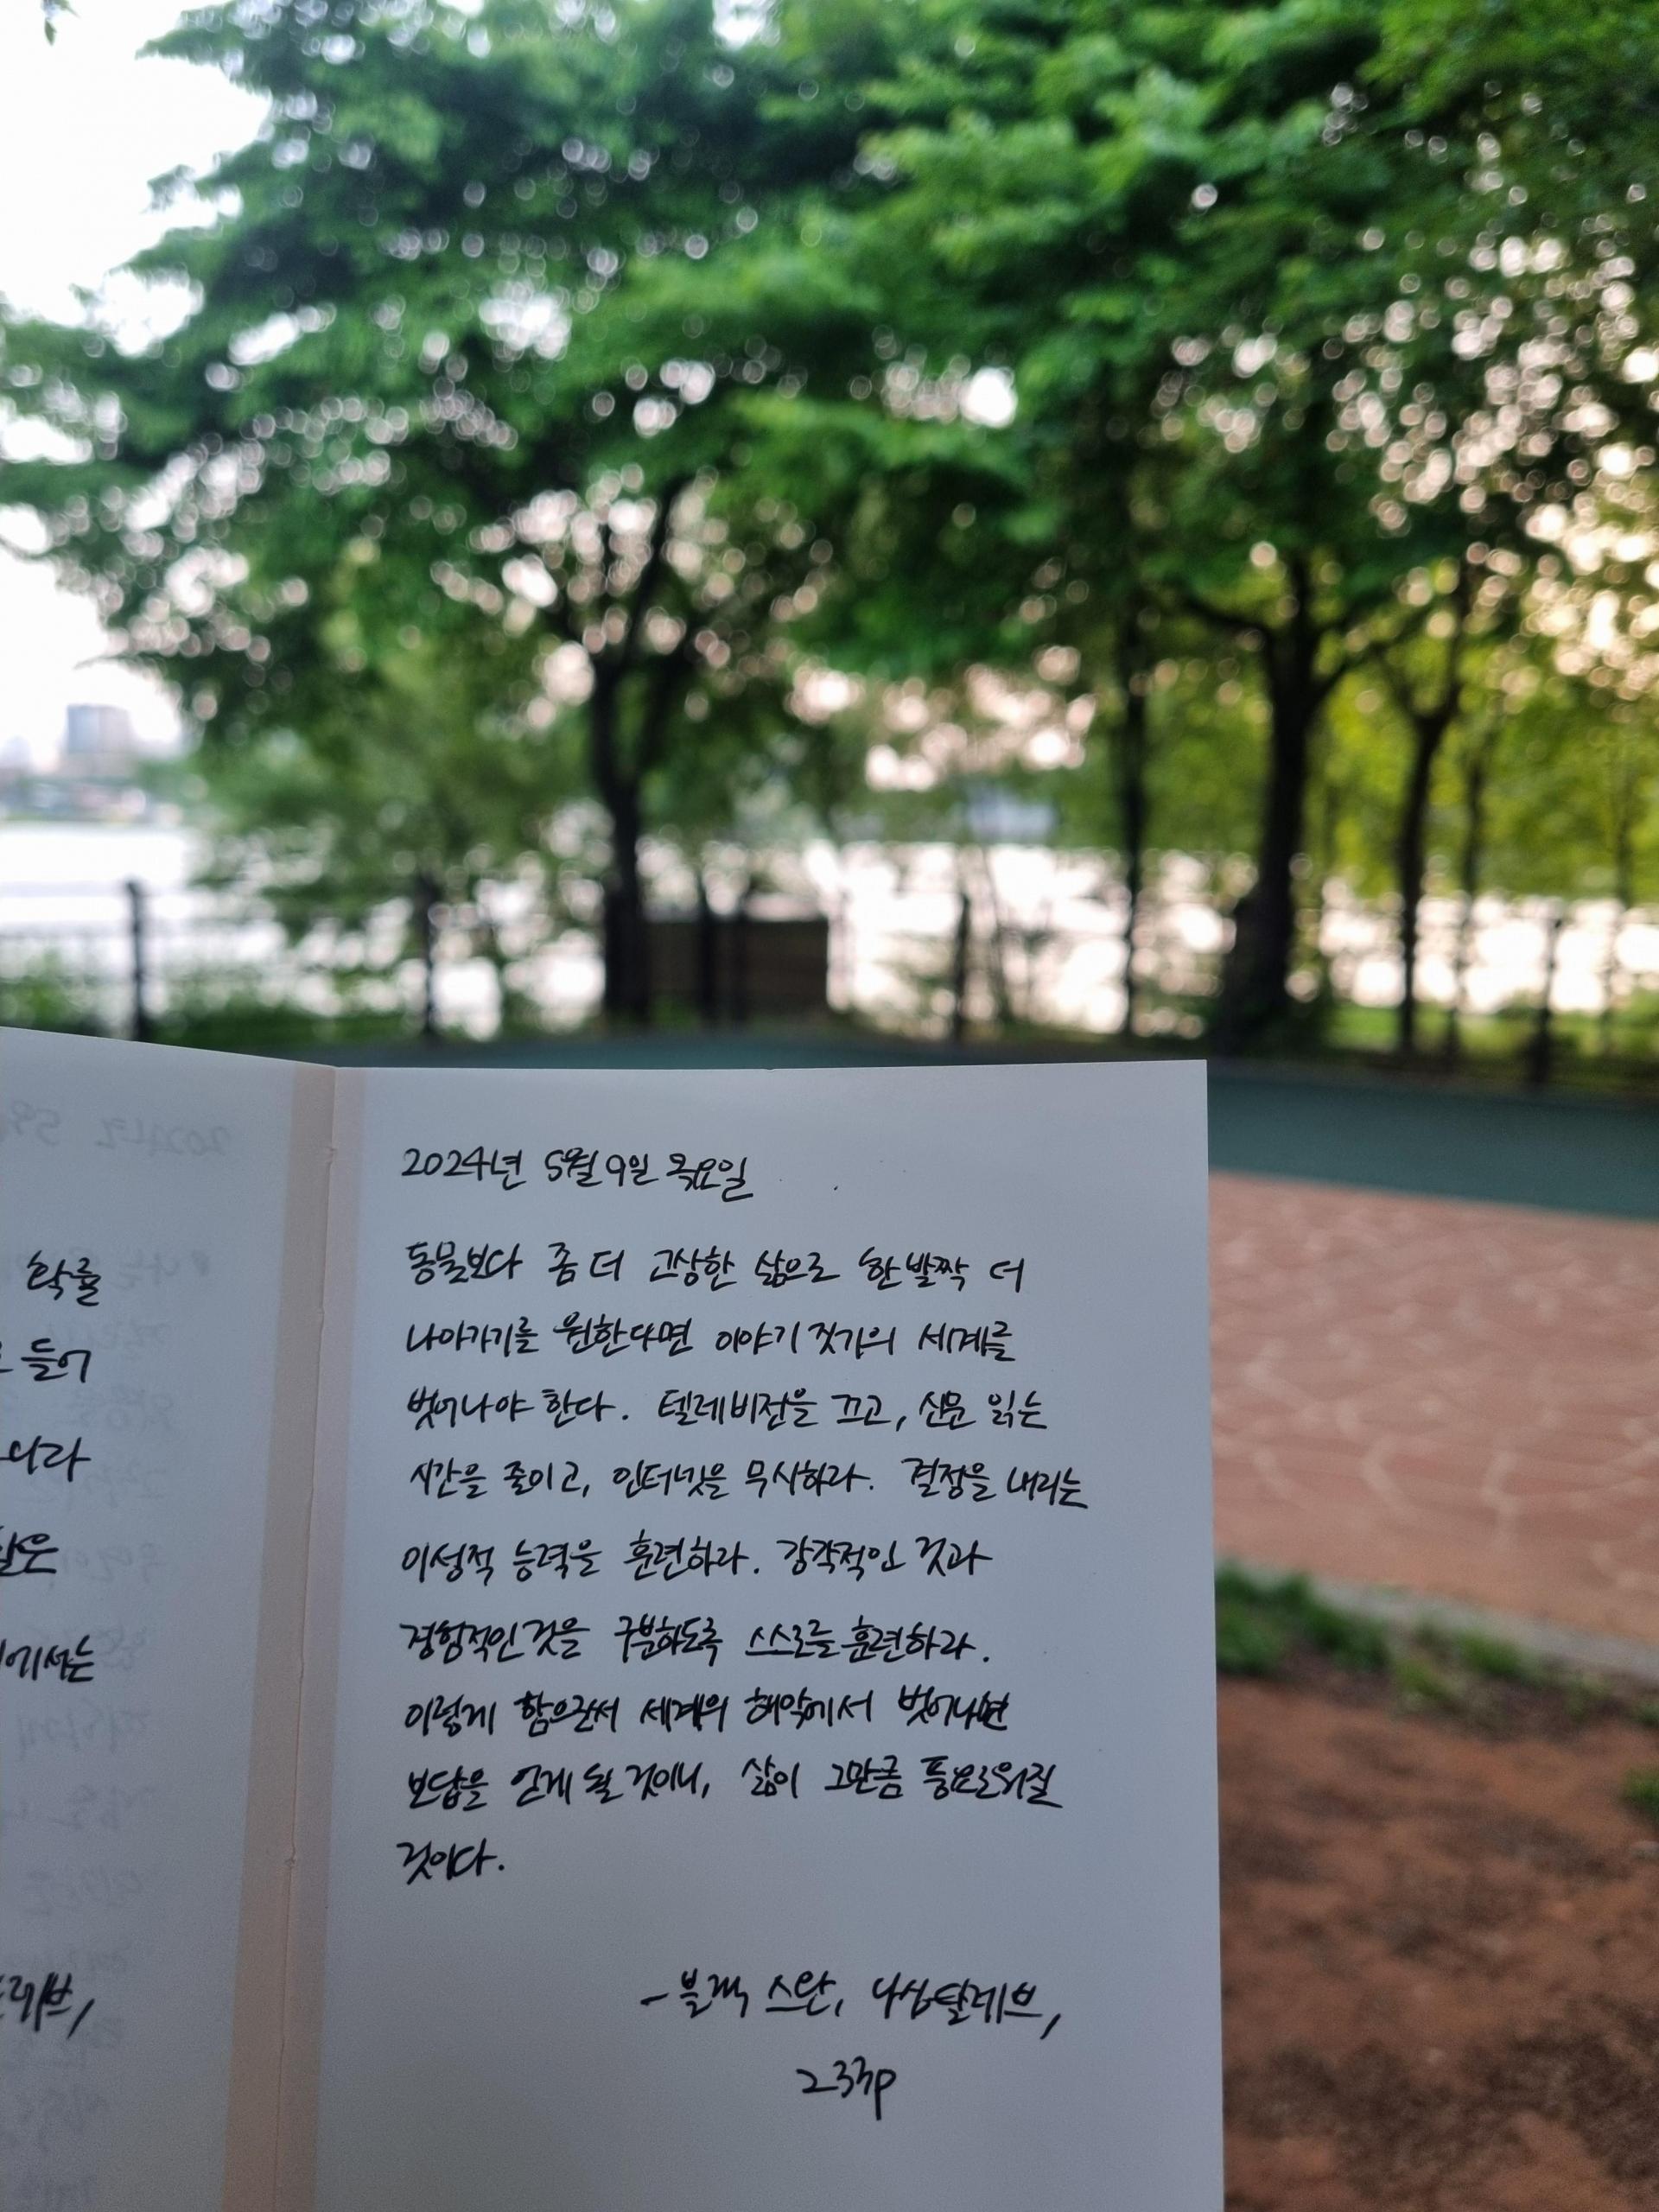 확률
들어
나라
에서는
2024년 5월 9일 목요일
동물보다 좀 더 고상한 삶으로 한 발짝 더
나아가기를 원한다면 이야기 짓기의 세계를
벗어나야 한다. 텔레비전을 끄고, 신문 읽는
시간을 줄이고, 인터넷을 무시하라. 결정을 내리는
이성적 능력을 훈련하라. 감각적인 것과
경험적인 것을 구분하도록 스스로를 훈련하라.
이렇게 함으로써 세계의 해악에서 벗어나면
보답을 얻게 될 것이니, 삶이 그만큼 풍요로워질
것이다.
- 블랙 스완, 나심 탈레브,
233p